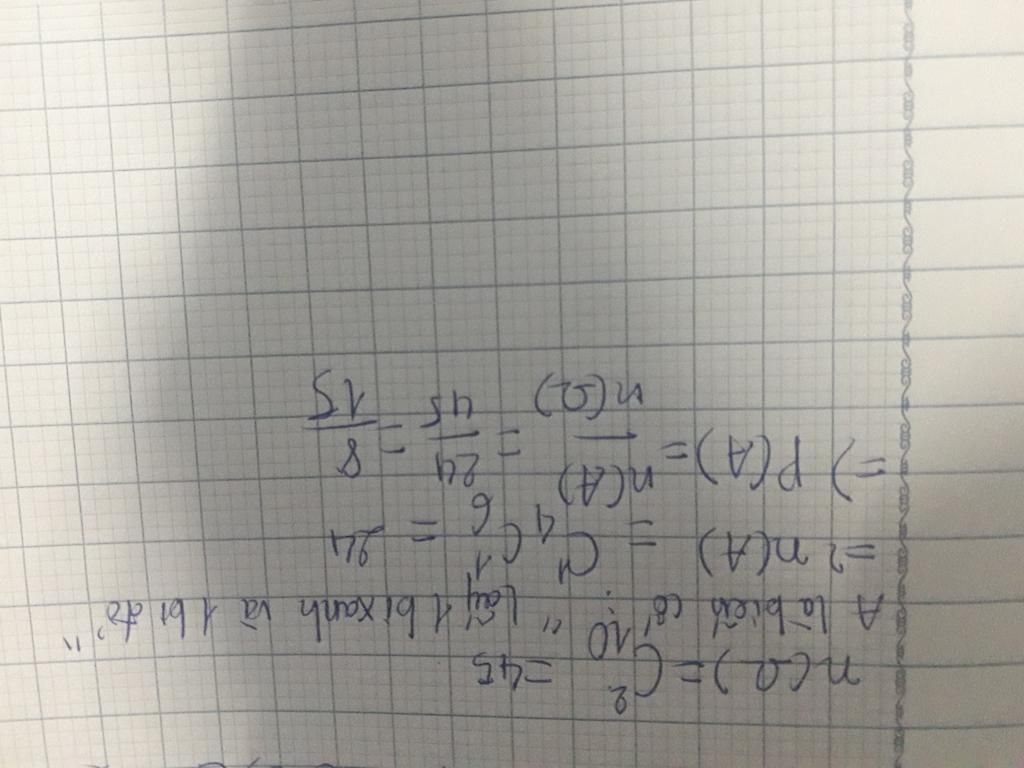 n(Ω) = C²₁₀ = 45
A là biến cố: "Lấy 1 bi xanh và 1 bi đỏ"
=> n(A) = C¹₄ C¹₆ = 24
=> P(A) = n(A)/n(Ω) = 24/45 = 8/15